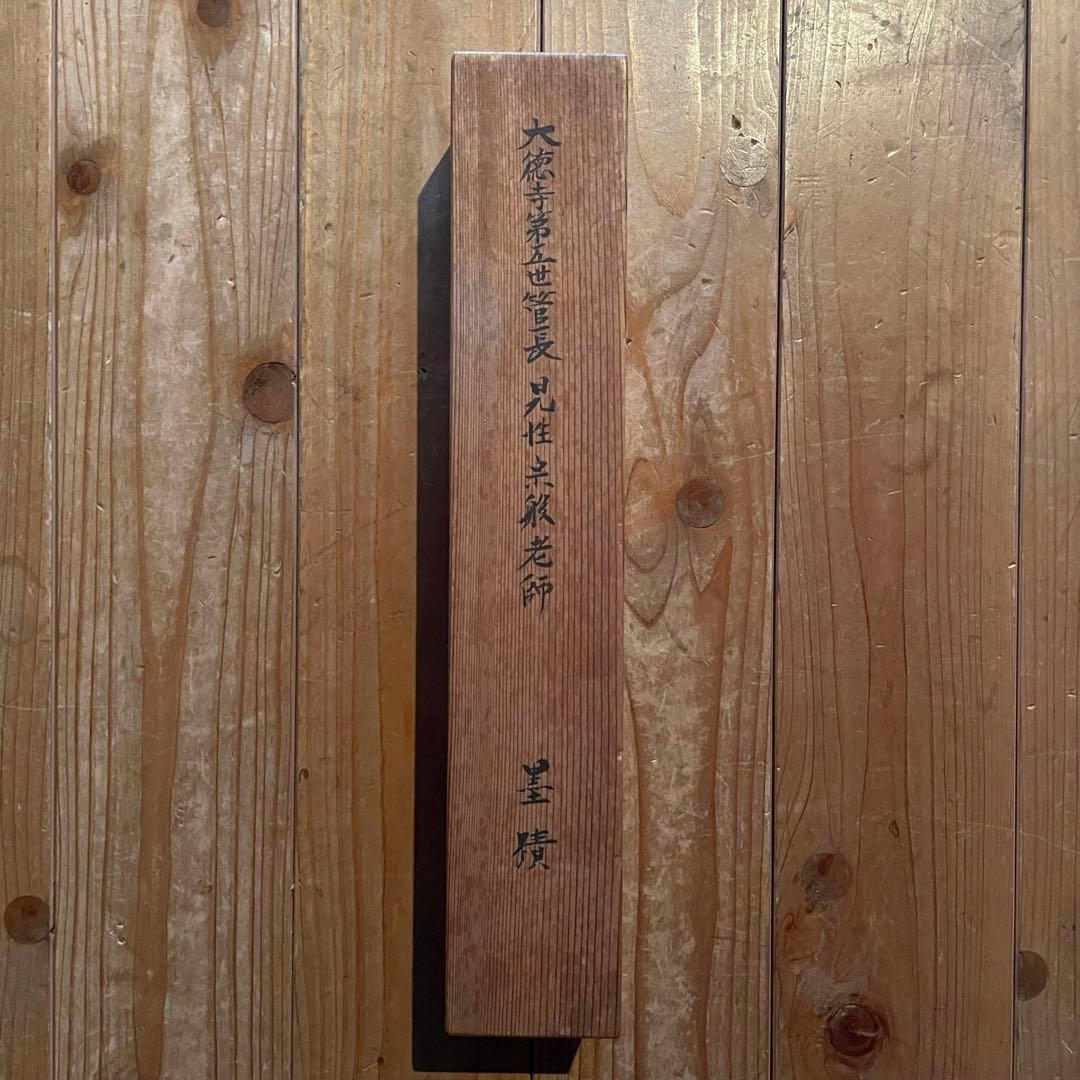 大徳寺第五世管長見性宗般老師
墨蹟